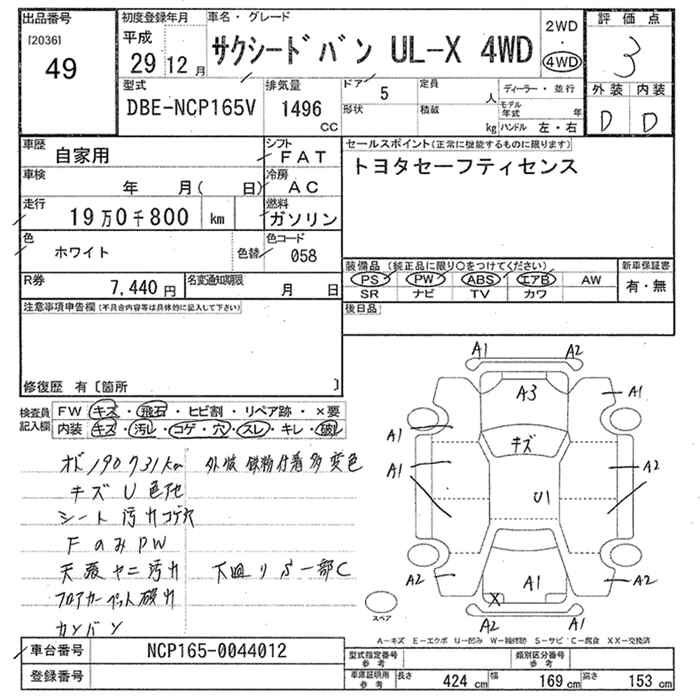 出品番号
[2036]
49
初度登録年月
平成
29 12 月
車名・グレード
サクシードバン UL-X 4WD
2WD
・
4WD
評価点
3
外装 内装
D D
型式
DBE-NCP165V
排気量
1496
cc
ドア 5
形状
定員
人
積載
kg
ディーラー・並行
モデル年式 年
ハンドル 左・右
車歴
自家用
シフト
FAT
車検
年 月( 日)
冷房
AC
走行
19万0千800 km
燃料
ガソリン
色
ホワイト
色替
色コード
058
R券
7,440 円
名変通知期限
月 日
セールスポイント(正常に機能するものに限ります)
トヨタセーフティセンス
装備品 (純正品に限り○をつけてください)
PS PW ABS エアB AW
SR ナビ TV カワ
新車保証書
有・無
後日品
注意事項申告欄(不具合内容等は具体的に記入して下さい)
修復歴 有〔箇所 〕
検査員
記入欄
FW キズ・飛石・ヒビ割・リペア跡・×要
内装 キズ・汚レ・コゲ・穴・スレ・キレ・破レ
キズ U 色他
シート 汚れ コゲ穴
FのみPW
天張ヤニ汚れ
下廻りサビ一部C
フロアカーペット破れ
カンバン
A1 A2
A3
A1
A1
キズ
A1
A2
U1
A2
A1
A2
X
A2 A1
スペア
A-キズ E-エクボ U-凹み W-補修跡 S-サビ C-腐食 XX-交換済
車台番号
NCP165-0044012
登録番号
型式指定番号
参考
類別区分番号
参考
車庫証明用
参考
長さ 424 cm
幅 169 cm
高さ 153 cm